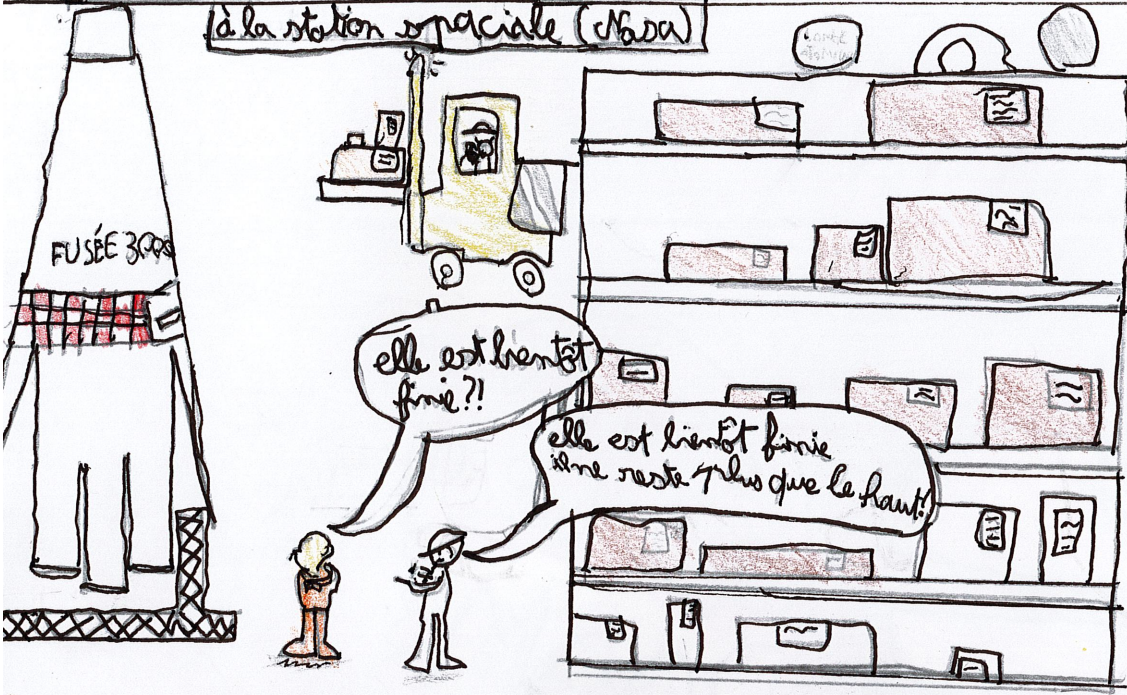 à la station spaciale (Nasa)
FUSÉE 3000
elle est bientôt
finie ?!
elle est bientôt finie
il ne reste plus que le haut!